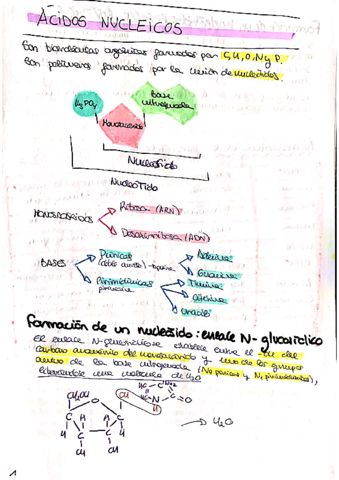 ÁCIDOS NUCLEICOS
Son biomoléculas orgánicas formadas por C,H,O,N y P.
Son polímeros formados por la unión de nucleótidos.
H3PO4
Base
nitrogenada
Monosacárido
Nucleósido
Nucleótido
MONOSACÁRIDOS
Ribosa (ARN)
Desoxirribosa (ADN)
BASES
Púricas
Pirimidínicas
Adenina
Guanina
Timina
Citosina
Uracilo
Formación de un nucleósido: enlace N-glucosídico
El enlace N-glucosídico se establece entre el -OH del
carbono anomérico del monosacárido y uno de los grupos
amino de la base nitrogenada (N9 púricas y N1 pirimidínicas),
liberándose una molécula de H2O
CH2OH
O
OH
C
H
H
C
C
C
C
H
N
C=O
H2O
1